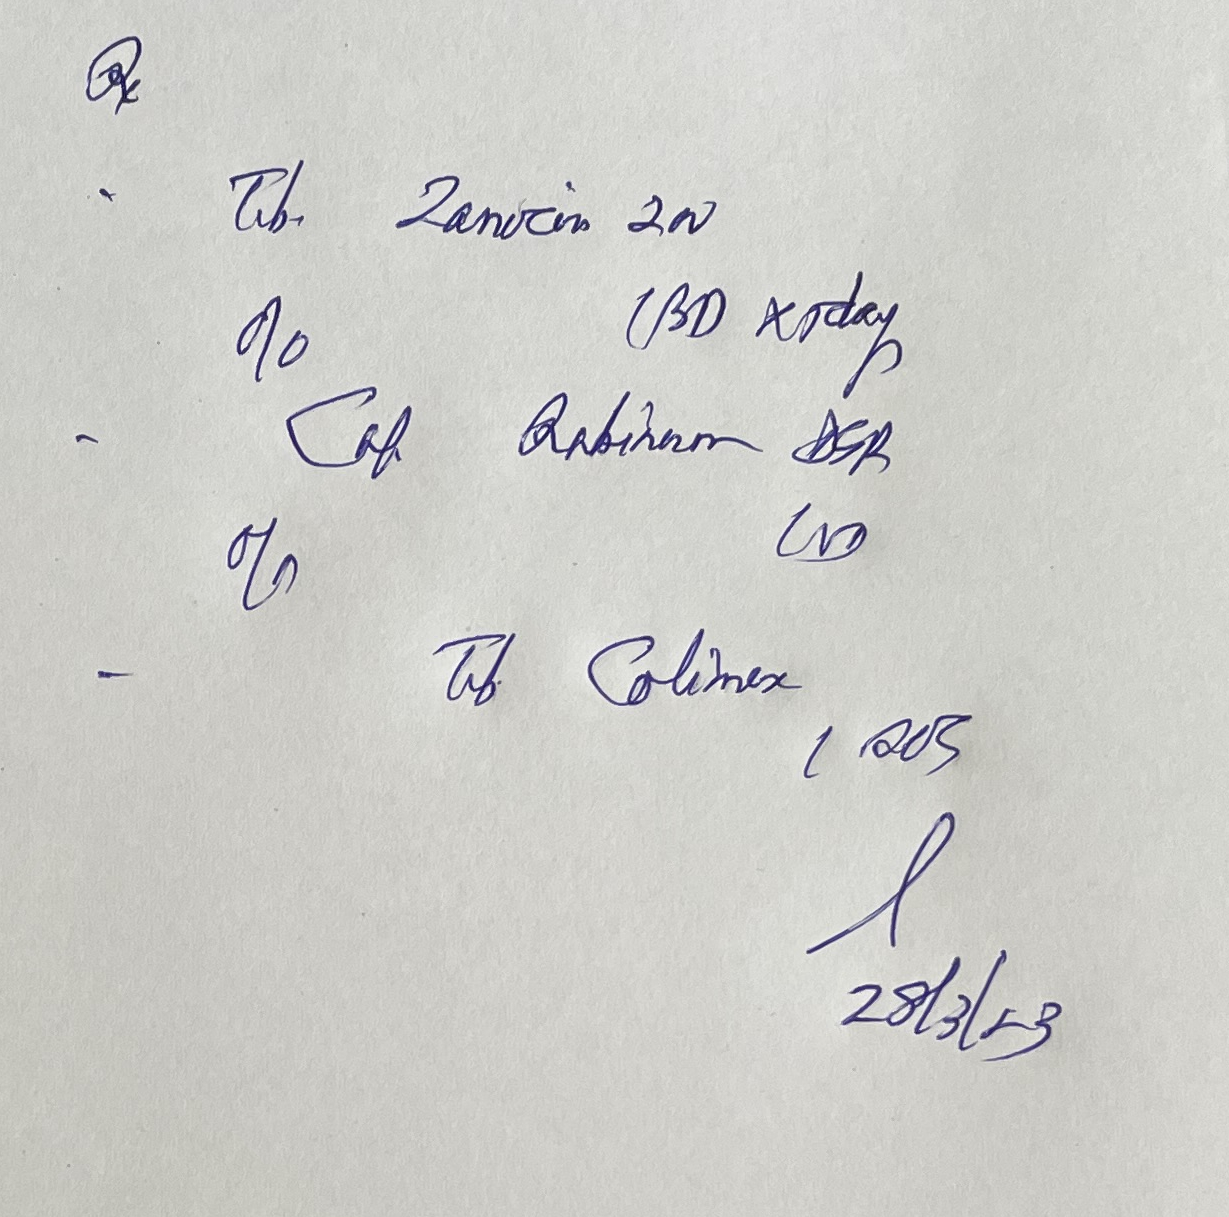 Rx
- Tab. Zanocin 200
1 BD x 5 day
- Cap Rabinem DSR
1 OD
- Tab Colimex
1 SOS
28/3/23